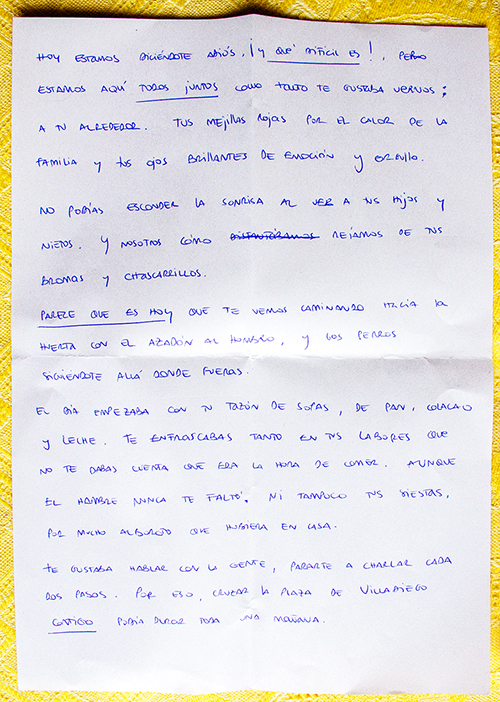 HOY ESTAMOS DICIÉNDOTE ADIÓS, ¡Y QUÉ DIFÍCIL ES!, PERO
ESTAMOS AQUÍ TODOS JUNTOS COMO TANTO TE GUSTABA VERNOS;
A TU ALREDEDOR. TUS MEJILLAS ROJAS POR EL CALOR DE LA
FAMILIA Y TUS OJOS BRILLANTES DE EMOCIÓN Y ORGULLO.
NO PODÍAS ESCONDER LA SONRISA AL VER A TUS HIJOS Y
NIETOS. Y NOSOTROS CÓMO DISFRUTÁBAMOS REÍAMOS DE TUS
BROMAS Y CHASCARRILLOS.
PARECE QUE ES HOY QUE TE VEMOS CAMINANDO HACIA LA
HUERTA CON EL AZADÓN AL HOMBRO, Y LOS PERROS
SIGUIÉNDOTE ALLÁ DONDE FUERAS.
EL DÍA EMPEZABA CON TU TAZÓN DE SOPAS, DE PAN, COLACAO
Y LECHE. TE ENFRASCABAS TANTO EN TUS LABORES QUE
NO TE DABAS CUENTA QUE ERA LA HORA DE COMER. AUNQUE
EL HAMBRE NUNCA TE FALTÓ, NI TAMPOCO TUS SIESTAS,
POR MUCHO ALBOROTO QUE HUBIERA EN CASA.
TE GUSTABA HABLAR CON LA GENTE, PARARTE A CHARLAR CADA
DOS PASOS. POR ESO, CRUZAR LA PLAZA DE VILLADIEGO
CONTIGO PODÍA DURAR TODA UNA MAÑANA.